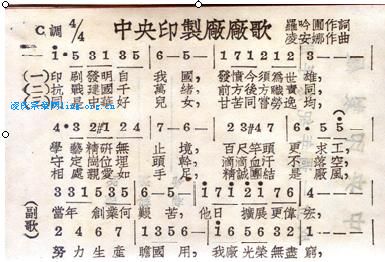 C.調 4/4 中央印製廠廠歌 羅吟圃作詞
凌安娜作曲
i·5 31 35 | 6—5— | 171212 | 3——
(一)印刷發明自 我國, 發憤今須為世雄,
(二)抗戰建國千 萬緒, 前方後方責任同,
(三)同是中華好 兒女, 甘苦同當勞逸均,
4·32#124 | 7—6— | 23#47 | 6·55
學藝精研無 止境, 百尺竿頭 更求工,
守定崗位埋 頭幹, 滴滴血汗 不落空,
相處親愛如 手足, 精誠團結 是廠風,
(副歌)
331535 | 6—5— | 172176 | 3——
當年 創業何 艱苦, 他日 擴展更偉宏,
2467 | 132— | 165632 | 1——
努力生產 贍國用, 我廠光榮無盡窮,